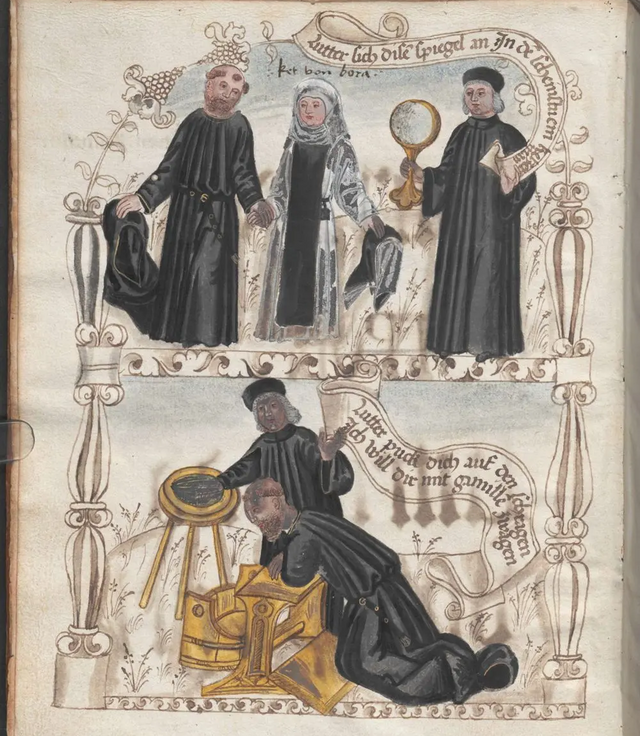 Lutter sich dise spiegel an Jn dē
ket von bora
Lutter puck dich auf den schragen
Ich will dir mit gamille zwagen